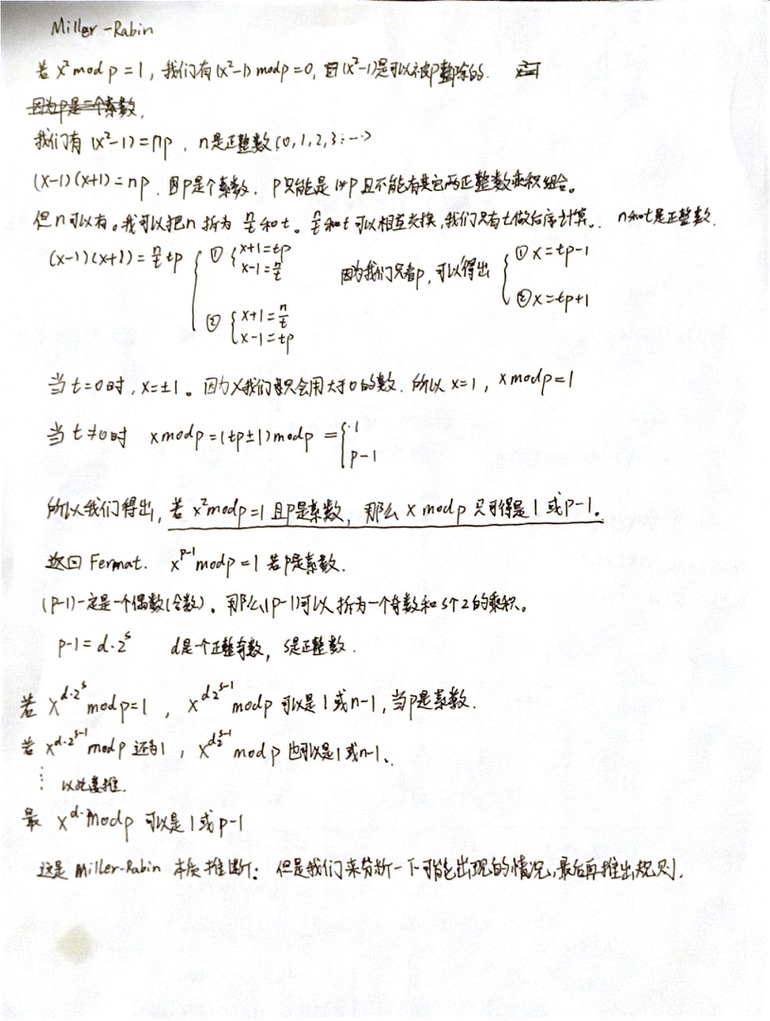 Miller-Rabin
若 x² mod p = 1, 我们有 (x²-1) mod p = 0, 即 (x²-1) 是可以被p整除的.
因为p是一个素数,
我们有 (x²-1) = np, n是正整数 (0,1,2,3…)
(x-1)(x+1) = np. 因p是个素数. p只能是 1*p 且不能有其它两正整数乘积组合。
但n可以有。我可以把n拆为 n/t 和 t。n/t 和 t 可以相互交换, 我们只有t做后序计算。 n和t是正整数.
(x-1)(x+1) = n/t tp { ① { x+1=tp x-1=n/t
② { x+1=n/t x-1=tp
因为我们只看p, 可以得出 { ① x=tp-1
② x=tp+1
当 t=0时, x=±1。因为x我们只会用大于0的数. 所以 x=1, x mod p = 1
当 t≠0时 x mod p = (tp±1) mod p = { 1
p-1
所以我们得出, 若 x² mod p = 1 且p是素数, 那么 x mod p 只可得是 1 或 p-1。
返回 Fermat. x^{p-1} mod p = 1 若p是素数.
(p-1)一定是一个偶数(合数)。那么(p-1)可以拆为一个奇数和s个2的乘积。
p-1 = d·2^s d是个正整奇数, s是正整数.
若 x^{d·2^s} mod p = 1, x^{d2^{s-1}} mod p 可以是 1 或 n-1, 当p是素数.
若 x^{d·2^{s-1}} mod p 还为1, x^{d2^{s-1}} mod p 也可以是1或n-1、
⋮ 以此类推.
最 x^{d·} mod p 可以是 1 或 p-1
这是 Miller-Rabin 本质推断: 但是我们来分断一下可能出现的情况, 最后再推出规则.